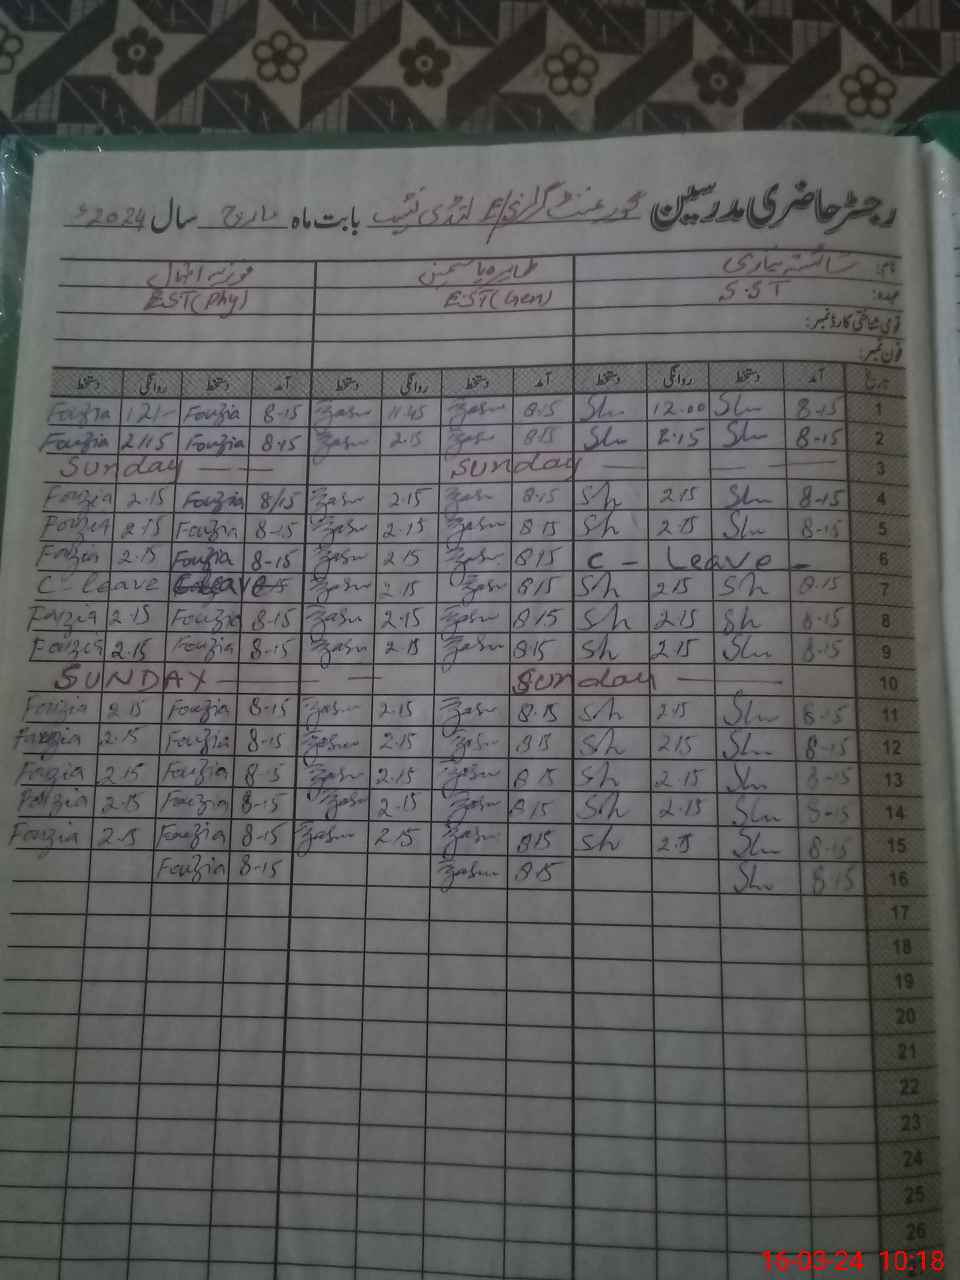 رجسٹر حاضری مدرسین گورنمنٹ گرلز E/S بابت ماہ مارچ سال 2024ء
نام: شائستہ نیازی طاہرہ یاسمین فوزیہ
عہدہ: S.ST EST(Gen) EST(Phy)
قومی شناختی کارڈ نمبر:
فون نمبر:
تاریخ آمد دستخط روانگی دستخط آمد دستخط روانگی دستخط آمد دستخط روانگی دستخط
1 8-15 Sh 12.00 Sh 8.15 11.45 8-15 Fouzia 12/- Fouzia
2 8-15 Sh 2.15 Sh 8.15 2.15 8.15 Fouzia 2.15 Fouzia
3 Sunday Sunday
4 8-15 Sh 2.15 Sh 8.15 2.15 8/15 Fouzia 2.15 Fouzia
5 8-15 Sh 2.15 Sh 8.15 2.15 8-15 Fouzia 2.15 Fouzia
6 C - Leave - 8.15 2.15 8-15 Fouzia 2.15 Fouzia
7 8.15 Sh 2.15 Sh 8.15 2.15 C- leave
8 8-15 Sh 2.15 Sh 8.15 2.15 8-15 Fouzia 2.15 Fouzia
9 8-15 Sh 2.15 Sh 8.15 2.15 8-15 Fouzia 2.15 Fouzia
10 Sunday SUNDAY
11 8-15 Sh 2.15 Sh 8.15 2.15 8-15 Fouzia 2.15 Fouzia
12 8-15 Sh 2.15 Sh 8.15 2.15 8-15 Fouzia 2.15 Fouzia
13 8-15 Sh 2.15 Sh 8.15 2.15 8-15 Fouzia 2.15 Fouzia
14 8-15 Sh 2.15 Sh 8.15 2.15 8-15 Fouzia 2.15 Fouzia
15 8-15 Sh 2.15 Sh 8.15 2.15 8-15 Fouzia 2.15 Fouzia
16 8.15 Sh 8.15 8-15 Fouzia
17
18
19
20
21
22
23
24
25
26
16-03-24 10:18